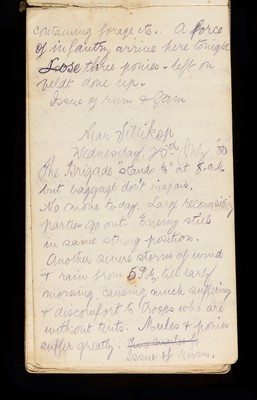 containing forage etc.. A force
of infantry arrives here tonight
Lose three ponies - left on
veldt done up.
Issue of rum & Jam
Near Vittikop
Wednesday, 25th July '00
The Brigade "stands to" at 8.a.m.
but baggage don't inspan.
No move to day. Large reconnoitring
parties go out. Enemy still
in same strong position.
Another severe storm of wind
& rain from till early
morning, causing much suffering
& discomfort to troops who are
without tents. Mules & ponies
suffer greatly.
Issue of rum.